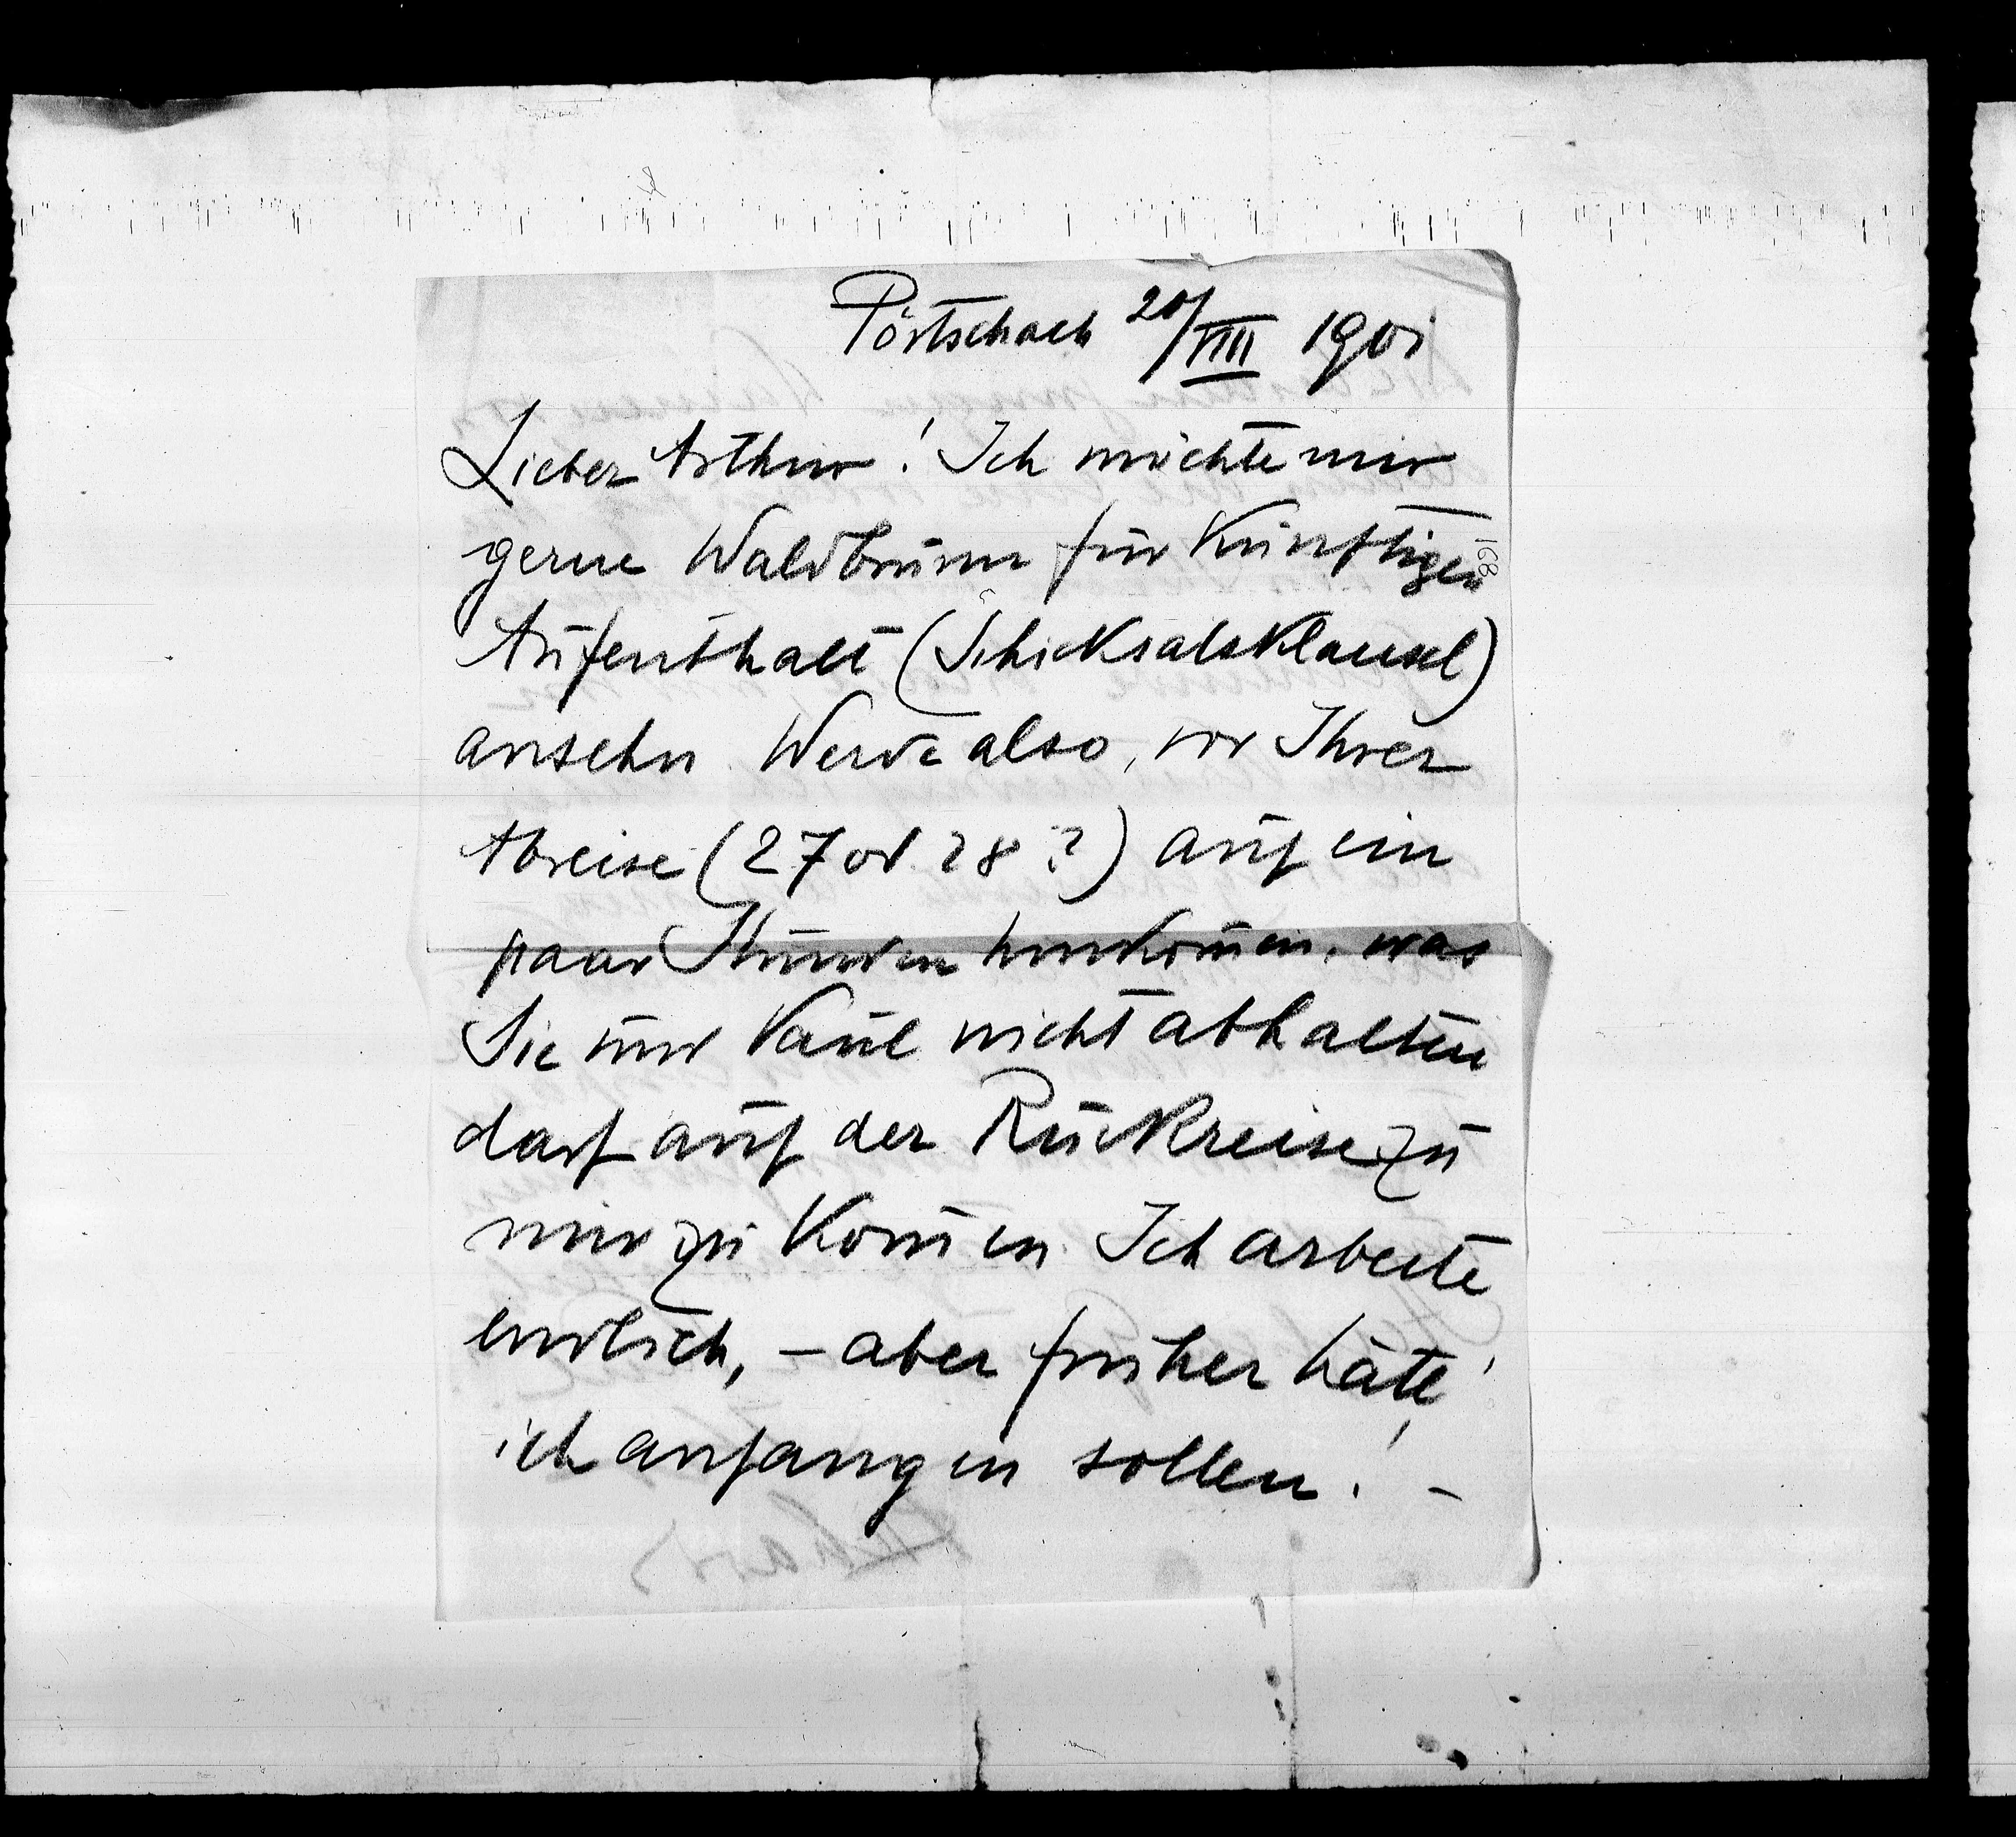 Pörtschach 20/VIII 1901
Lieber Arthur! Ich möchte mir
gerne Waldbrunn für künftigen
168
Aufenthalt (Schicksalsklausel)
ansehn. Werde also, vor Ihrer
Abreise (27 od 28?) auf ein
paar Stunden hinkom̄en, was
Sie und Paul nicht abhalten
darf auf der Rückreise zu
mir zu kom̄en. Ich arbeite
endlich, – aber früher hätte
ich anfangen sollen! –